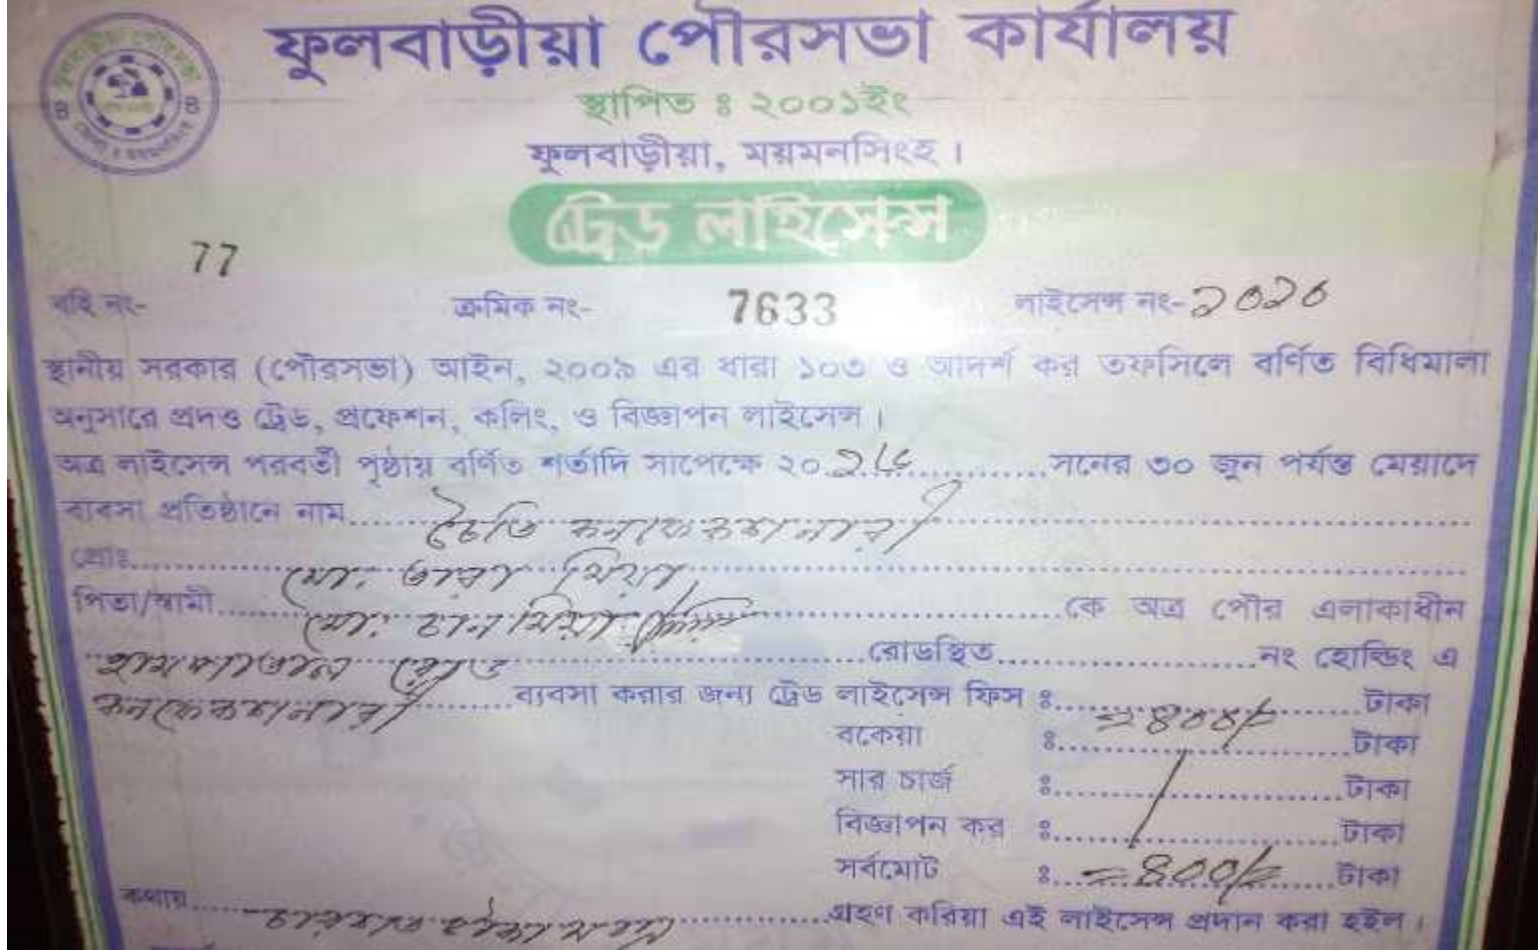 ফুলবাড়ীয়া পৌরসভা কার্যালয়
স্থাপিত ঃ ২০০১ইং
ফুলবাড়ীয়া, ময়মনসিংহ।
ট্রেড লাইসেন্স
77
বহি নং- ক্রমিক নং- 7633 লাইসেন্স নং- ১০১০
স্থানীয় সরকার (পৌরসভা) আইন, ২০০৯ এর ধারা ১০৩ ও আদর্শ কর তফসিলে বর্ণিত বিধিমালা
অনুসারে প্রদও ট্রেড, প্রফেশন, কলিং, ও বিজ্ঞাপন লাইসেন্স।
অত্র লাইসেন্স পরবর্তী পৃষ্ঠায় বর্ণিত শর্তাদি সাপেক্ষে ২০.............সনের ৩০ জুন পর্যন্ত মেয়াদে
ব্যবসা প্রতিষ্ঠানে নাম..... চৈতি কনফেকশনারী
প্রোঃ..... মো. তারা মিয়া
পিতা/স্বামী..... মো. চান মিয়া .....কে অত্র পৌর এলাকাধীন
হাসপাতাল রোড .....রোডস্থিত.....নং হোল্ডিং এ
কনফেকশনারী .....ব্যবসা করার জন্য ট্রেড লাইসেন্স ফিস ঃ..... =৪০০/= .....টাকা
বকেয়া ঃ.....টাকা
সার চার্জ ঃ.....টাকা
বিজ্ঞাপন কর ঃ.....টাকা
সর্বমোট ঃ..... =৪০০/= .....টাকা
কথায়..... .....গ্রহণ করিয়া এই লাইসেন্স প্রদান করা হইল।